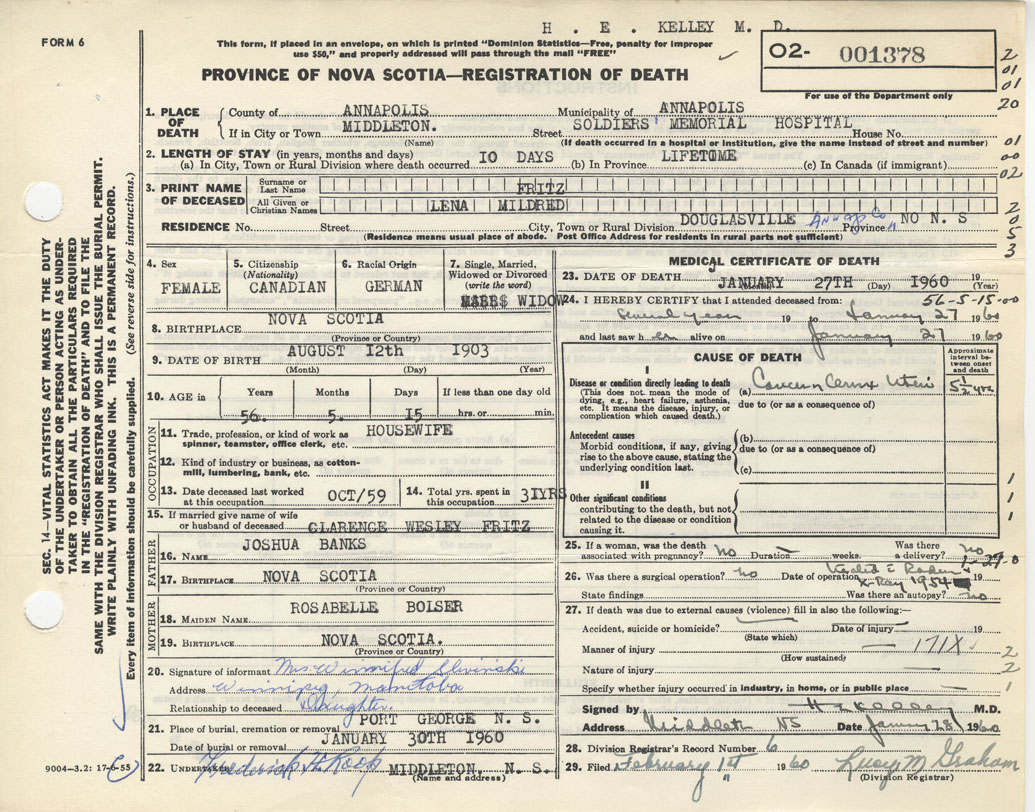 H. E. KELLEY M. D.
FORM 6
This form, if placed in an envelope, on which is printed "Dominion Statistics—Free, penalty for improper
use $50," and properly addressed will pass through the mail "FREE"
02- 001378
For use of the Department only
PROVINCE OF NOVA SCOTIA—REGISTRATION OF DEATH
2
01
01
20
01
00
02
2
0
5
3
1. PLACE OF DEATH
County of ANNAPOLIS Municipality of ANNAPOLIS
If in City or Town MIDDLETON. Street SOLDIERS' MEMORIAL HOSPITAL House No.
(Name) (If death occurred in a hospital or institution, give the name instead of street and number)
2. LENGTH OF STAY (in years, months and days)
(a) In City, Town or Rural Division where death occurred 10 DAYS (b) In Province LIFETOME (c) In Canada (if immigrant)
3. PRINT NAME OF DECEASED
Surname or Last Name FRITZ
All Given or Christian Names LENA MILDRED
RESIDENCE No. Street City, Town or Rural Division DOUGLASVILLE Annap Co Province NO N. S
(Residence means usual place of abode. Post Office Address for residents in rural parts not sufficient)
4. Sex
FEMALE
5. Citizenship (Nationality)
CANADIAN
6. Racial Origin
GERMAN
7. Single, Married, Widowed or Divorced (write the word)
WIDOW
8. BIRTHPLACE NOVA SCOTIA
(Province or Country)
9. DATE OF BIRTH AUGUST 12th 1903
(Month) (Day) (Year)
10. AGE in Years Months Days If less than one day old
56. 5. 15 hrs. or min.
OCCUPATION
11. Trade, profession, or kind of work as spinner, teamster, office clerk, etc. HOUSEWIFE
12. Kind of industry or business, as cotton-mill, lumbering, bank, etc.
13. Date deceased last worked at this occupation OCT/59
14. Total yrs. spent in this occupation 31YRS
15. If married give name of wife or husband of deceased CLARENCE WESLEY FRITZ
FATHER
16. NAME JOSHUA BANKS
17. BIRTHPLACE NOVA SCOTIA
(Province or Country)
MOTHER
18. MAIDEN NAME ROSABELLE BOLSER
19. BIRTHPLACE NOVA SCOTIA.
(Province or Country)
20. Signature of informant Mrs. Winnifred Slivinski
Address Winnipeg, Manitoba
Relationship to deceased Daughter.
21. Place of burial, cremation or removal PORT GEORGE N. S.
Date of burial or removal JANUARY 30TH 1960
22. UNDERTAKER Frederick A. Roop MIDDLETON, N. S.
(Name and address)
MEDICAL CERTIFICATE OF DEATH
23. DATE OF DEATH JANUARY 27TH 1960 19
(Day) (Year)
24. I HEREBY CERTIFY that I attended deceased from: 56-5-15-00
Several years 19 to January 27 1960
and last saw her alive on January 27 1960
CAUSE OF DEATH
Approximate interval between onset and death
I
Disease or condition directly leading to death
(This does not mean the mode of dying, e.g., heart failure, asthenia, etc. It means the disease, injury, or complication which caused death.)
(a) Cancer Cervix Uteri 5½ yrs
due to (or as a consequence of)
Antecedent causes
Morbid conditions, if any, giving rise to the above cause, stating the underlying condition last.
(b)
due to (or as a consequence of)
(c)
II
Other significant conditions
contributing to the death, but not related to the disease or condition causing it.
1
1
1
25. If a woman, was the death associated with pregnancy? no Duration — weeks. Was there a delivery? no
26. Was there a surgical operation? no Date of operation 19
X-Ray 1954
State findings Was there an autopsy? no
27. If death was due to external causes (violence) fill in also the following:—
Accident, suicide or homicide? Date of injury 19
(State which)
Manner of injury — 171X. 2
(How sustained)
Nature of injury — 2
Specify whether injury occurred in industry, in home, or in public place — 1
Signed by H E Kelley M.D.
Address Middleton NS Date January 28 1960
28. Division Registrar's Record Number 6
29. Filed February 1st 1960 Lucy M Graham
(Division Registrar)
SEC. 14—VITAL STATISTICS ACT MAKES IT THE DUTY
OF THE UNDERTAKER OR PERSON ACTING AS UNDER-
TAKER TO OBTAIN ALL THE PARTICULARS REQUIRED
IN THE "REGISTRATION OF DEATH" AND TO FILE THE
SAME WITH THE DIVISION REGISTRAR WHO SHALL ISSUE THE BURIAL PERMIT.
WRITE PLAINLY WITH UNFADING INK. THIS IS A PERMANENT RECORD.
Every item of information should be carefully supplied. (See reverse side for instructions.)
9004—3.2: 17-6-55